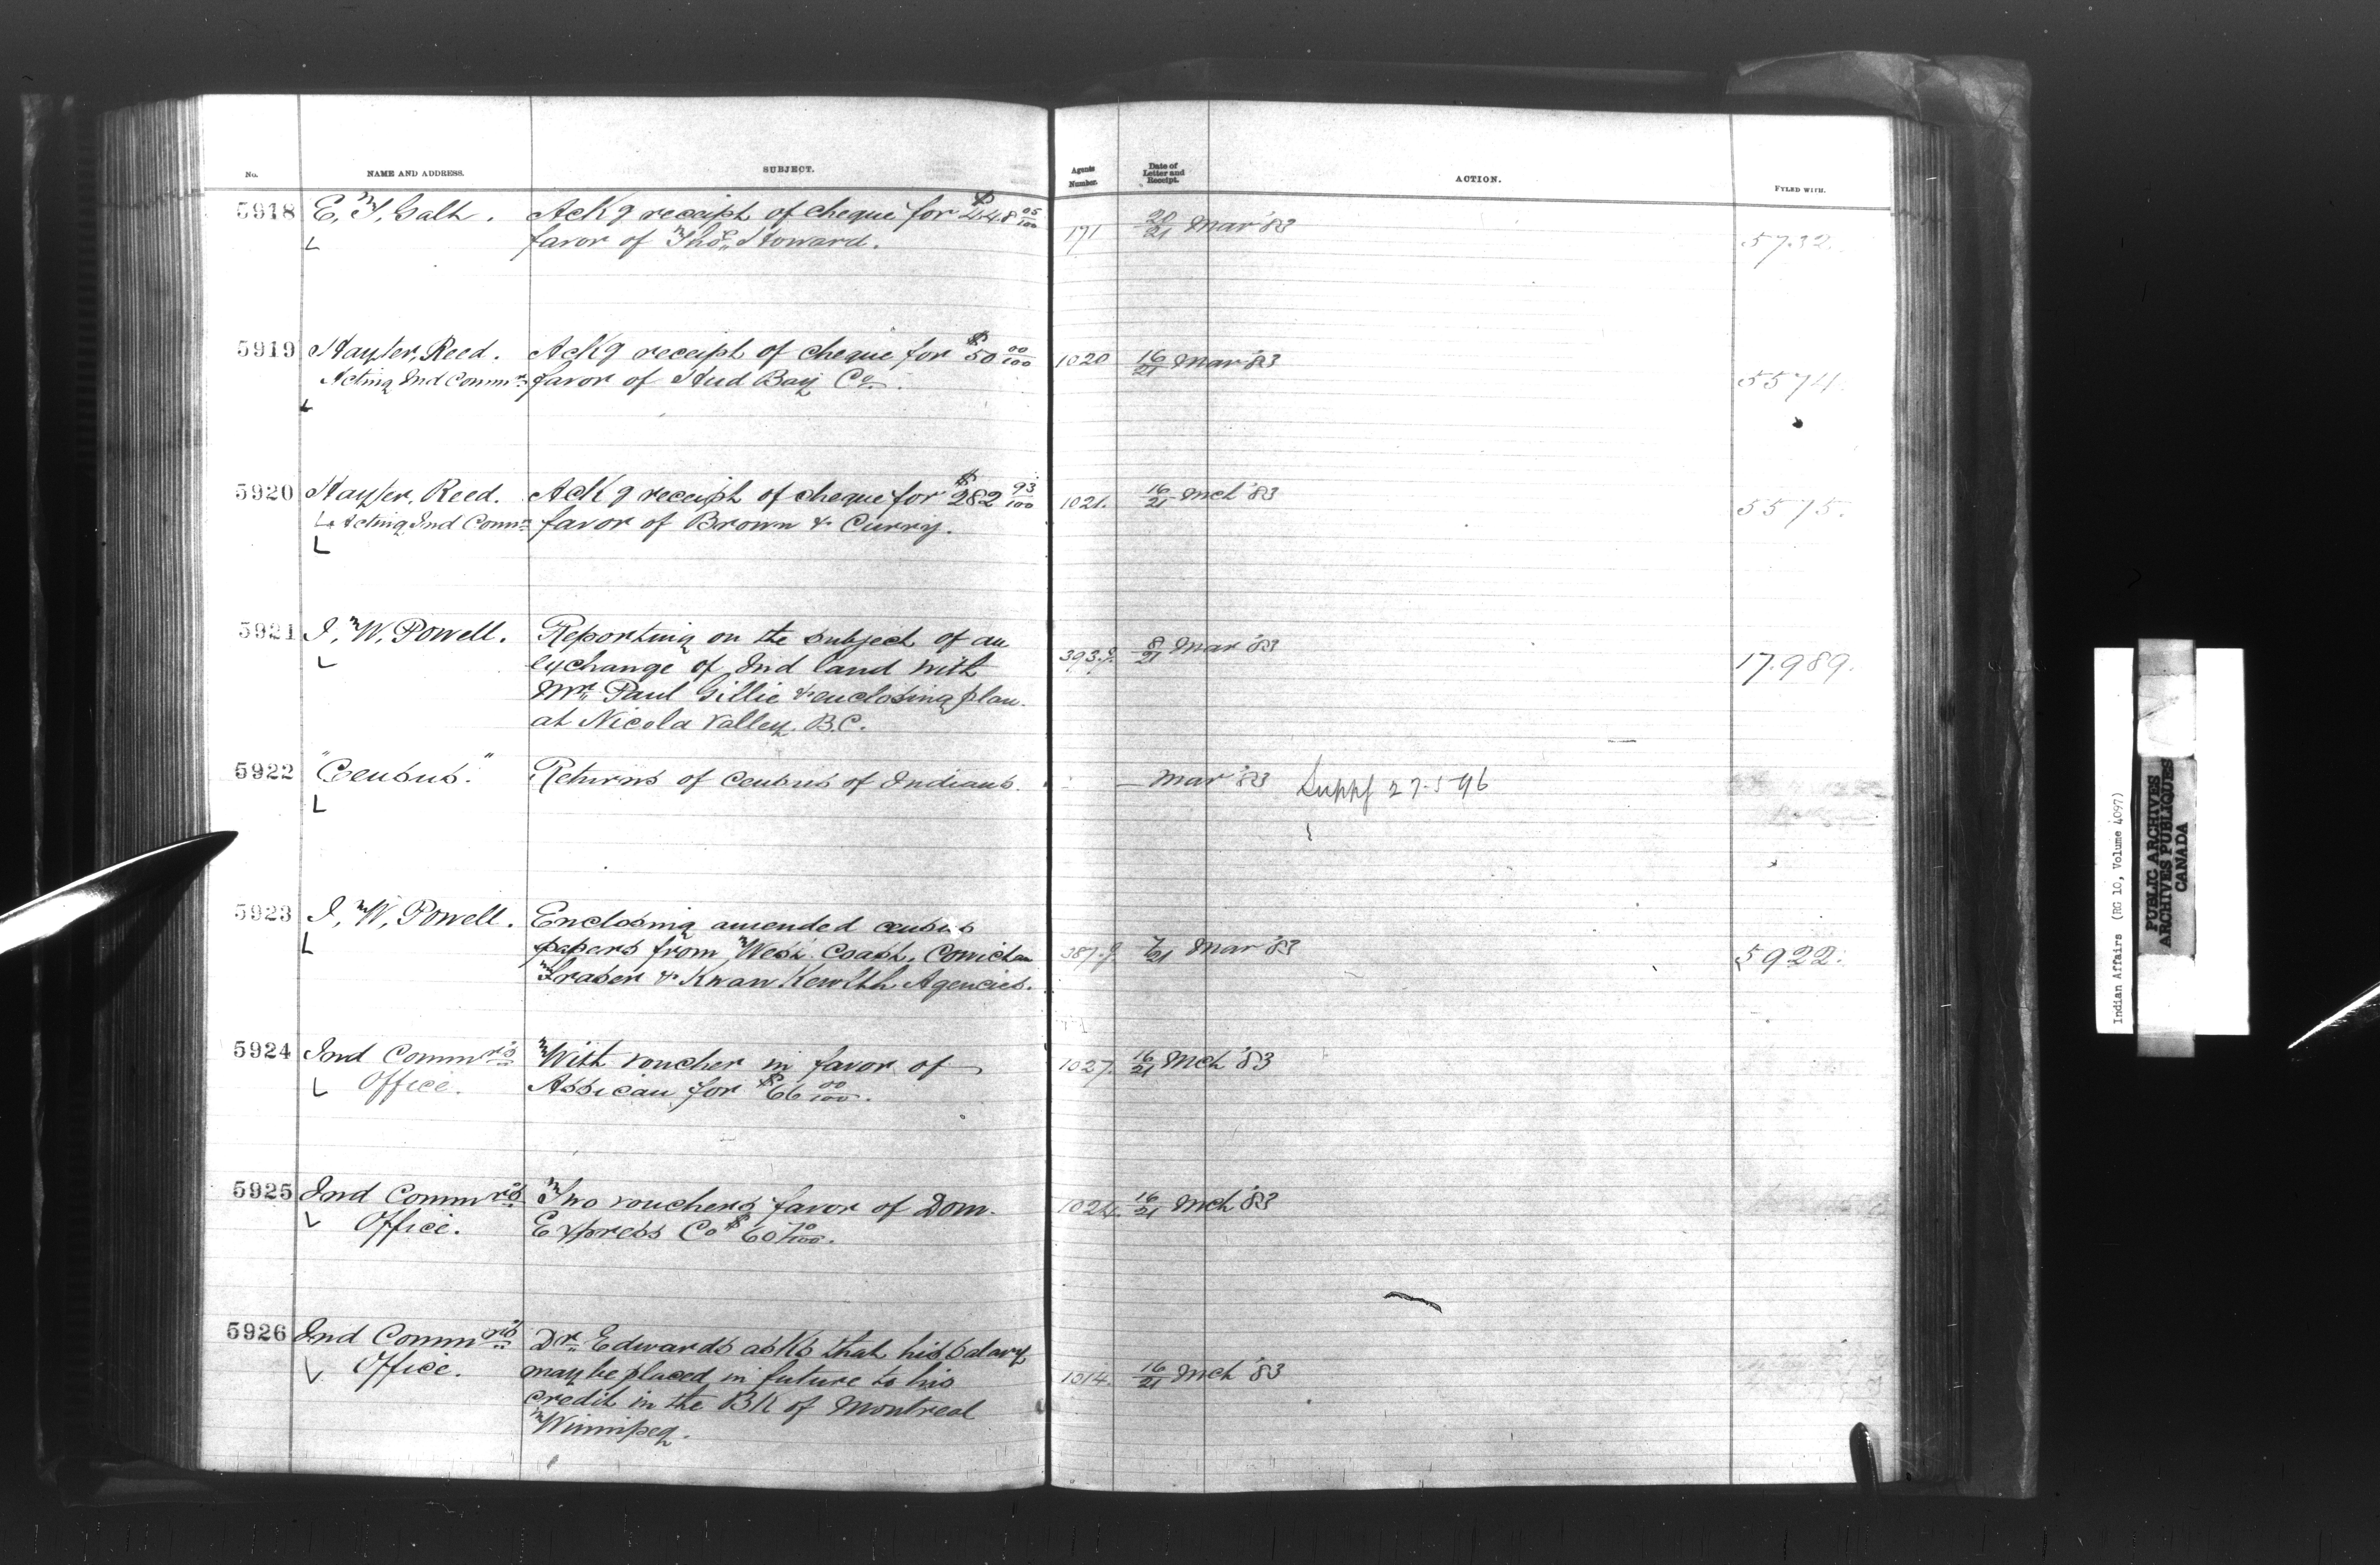 No. NAME AND ADDRESS. SUBJECT. Agents Number. Date of Letter and Receipt. ACTION. FYLED WITH.
5918 E, T, Galt. Ackg receipt of cheque for $448 05/100 171 20/21 Mar '83 5732.
favor of Thos. Howard.
5919 Hayter, Reed. Ackg receipt of cheque for $50 00/100 1020 16/21 Mar '83 5574.
Acting Ind Commr favor of Hud Bay Co.
5920 Hayter, Reed. Ackg receipt of cheque for $282 93/100 1021. 16/21 Mch '83 5575.
Acting Ind Commr favor of Brown & Curry.
5921 I, W, Powell. Reporting on the subject of an 393.g. 8/21 Mar '83 17.989.
exchange of Ind land with
Mr. Paul Gillie & enclosing plan.
at Nicola Valley. B.C.
5922 "Census." Returns of Census of Indians. — Mar '83 27.596
5923 I, W, Powell. Enclosing amended census 387.g. 7/21 Mar '83 5922.
papers from West Coast, Cowichan
Fraser & Kwaw Kewlth Agencies.
5924 Ind Commr's With voucher in favor of 1027. 16/21 Mch '83
Office. Assican for $66 00/100.
5925 Ind Commr's Two vouchers favor of Dom. 1024. 16/21 Mch '83
Office. Express Co $60 70/100.
5926 Ind Commr's Dr. Edwards asks that his salary 1014. 16/21 Mch '83
Office. may be placed in future to his
credit in the BK of Montreal
Winnipeg.
Indian Affairs (RG 10, Volume 4097)
PUBLIC ARCHIVES
ARCHIVES PUBLIQUES
CANADA